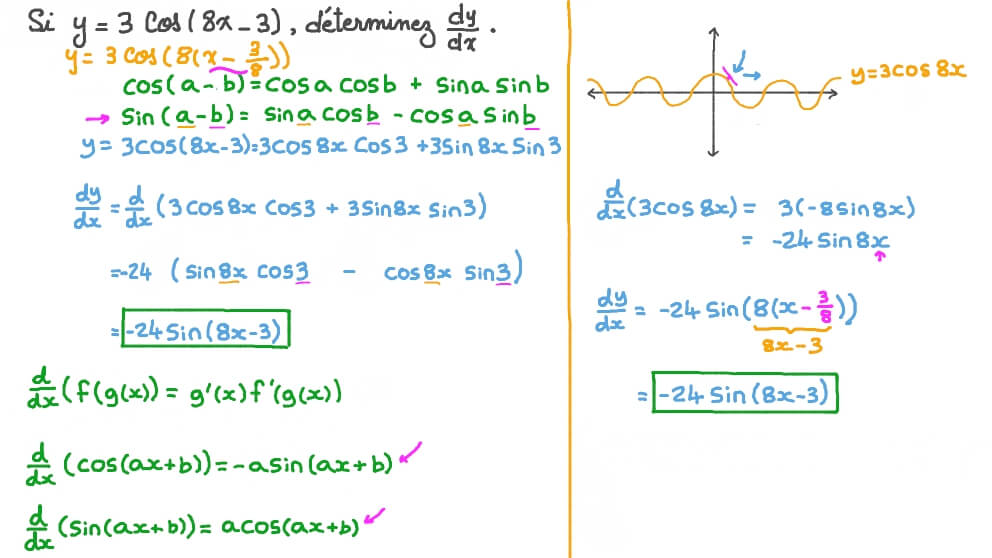 Si y = 3 cos(8x - 3), déterminez dy/dx.
y = 3 cos(8(x - 3/8))
cos(a - b) = cos a cos b + sin a sin b
→ sin(a - b) = sin a cos b - cos a sin b
y = 3cos(8x-3)=3cos8x cos3 +3sin8x sin3
dy/dx = d/dx (3cos8x cos3 + 3sin8x sin3)
=-24 (sin8x cos3 - cos8x sin3)
= -24sin(8x-3)
d/dx (f(g(x)) = g'(x)f'(g(x))
d/dx (cos(ax+b)) = -asin(ax+b)
d/dx (sin(ax+b)) = acos(ax+b)
y=3cos8x
d/dx (3cos8x) = 3(-8sin8x)
= -24sin8x
dy/dx = -24sin(8(x - 3/8))
8x-3
= -24sin(8x-3)